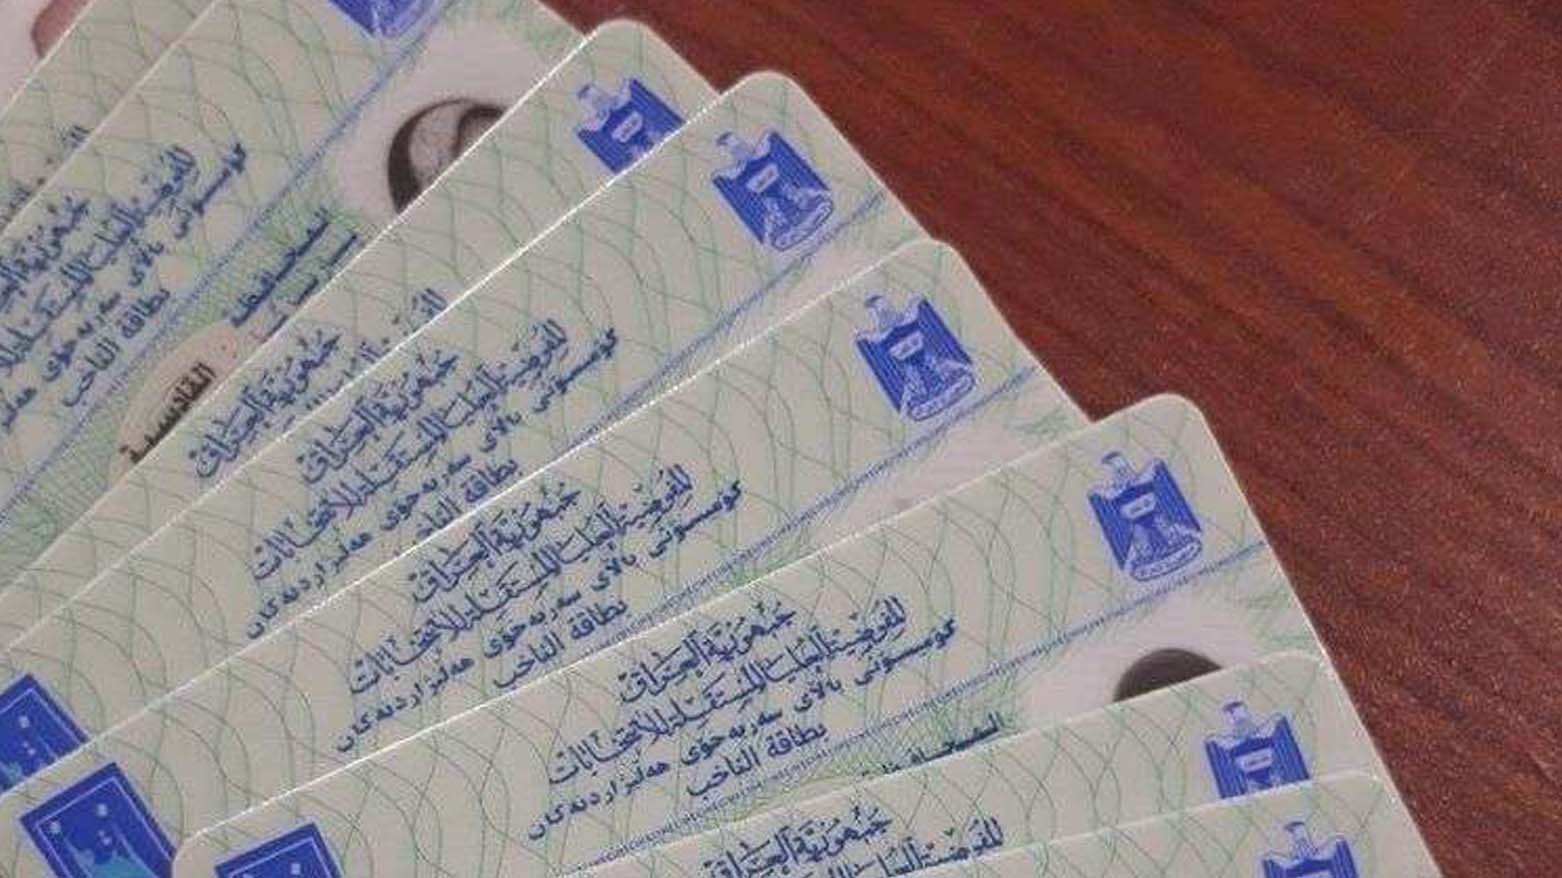 جمهورية العراق
المفوضية العليا المستقلة للانتخابات
كۆمسيۆنى بالاى سەربەخۆى هەلبژاردنەكان
بطاقة الناخب
القادسية
جمهورية العراق
جمهورية العراق
المفوضية العليا المستقلة للانتخابات
كۆمسيۆنى بالاى سەربەخۆى هەلبژاردنەكان
بطاقة الناخب
جمهورية العراق
المفوضية العليا المستقلة للانتخابات
كۆمسيۆنى بالاى سەربەخۆى هەلبژاردنەكان
بطاقة الناخب
جمهورية العراق
المفوضية العليا المستقلة للانتخابات
كۆمسيۆنى بالاى سەربەخۆى هەلبژاردنەكان
بطاقة الناخب
جمهورية العراق